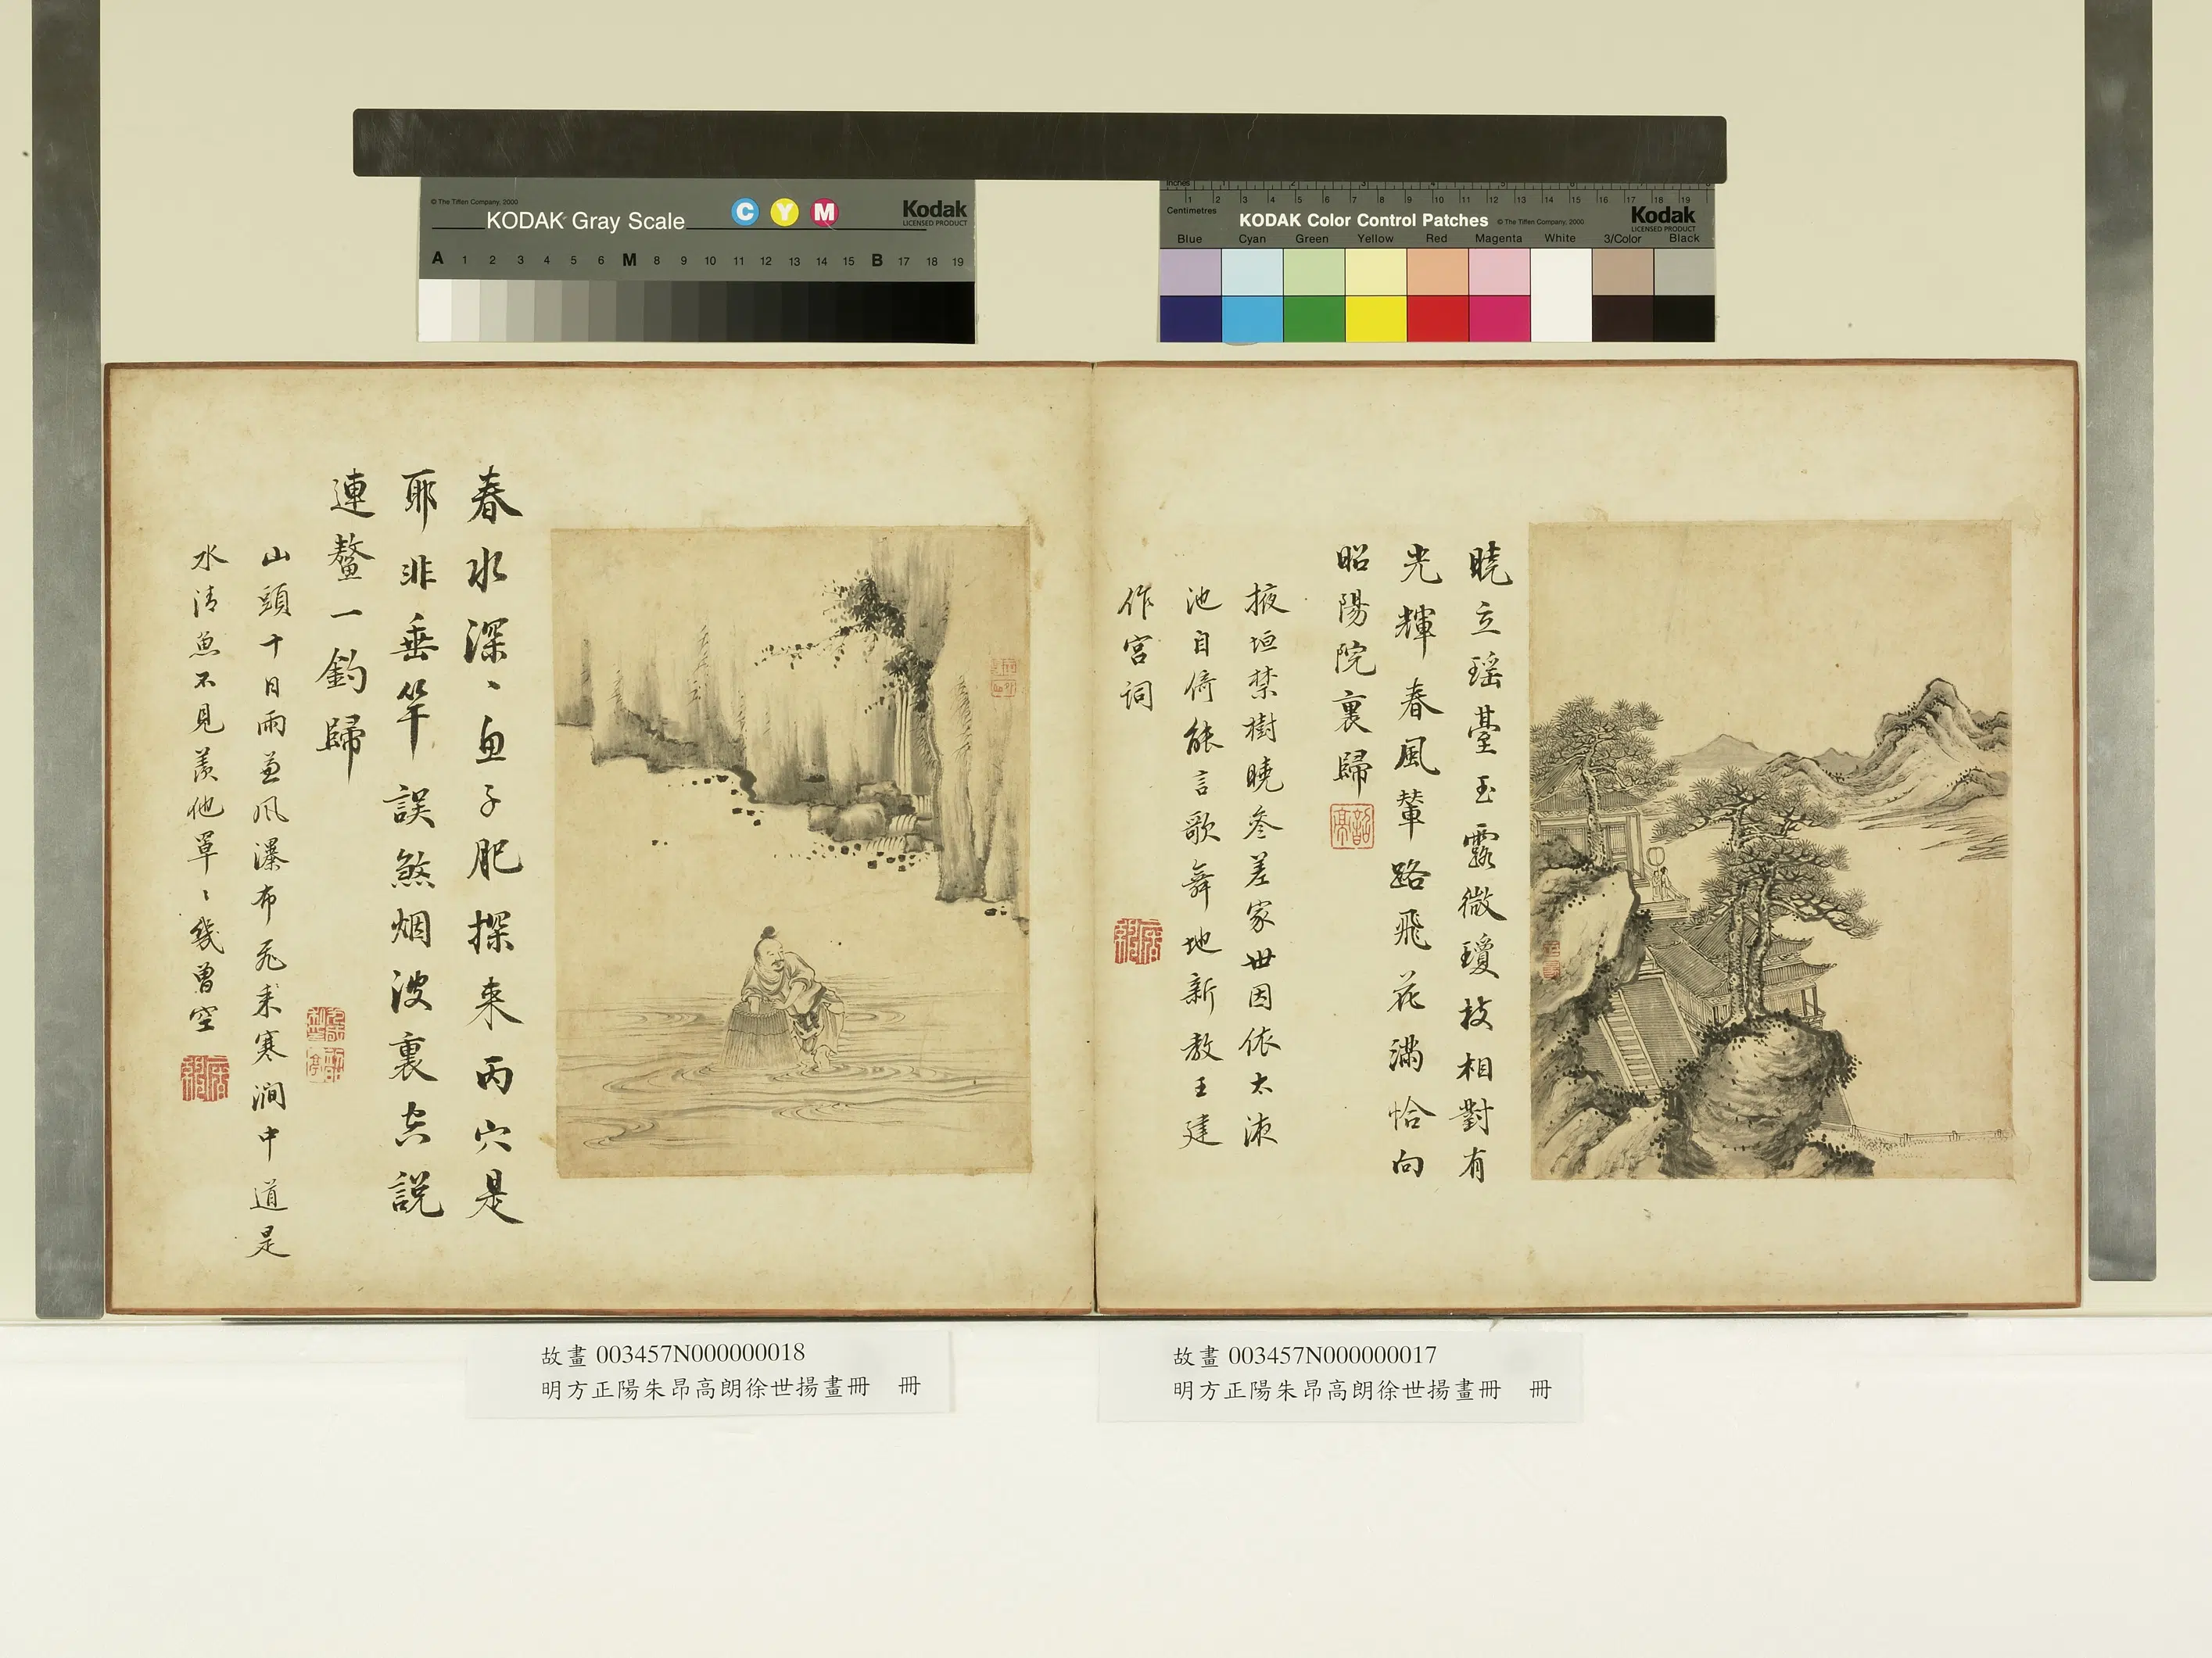 © The Tiffen Company, 2000
KODAK Gray Scale
C Y M
Kodak
LICENSED PRODUCT
A 1 2 3 4 5 6 M 8 9 10 11 12 13 14 15 B 17 18 19
Inches 1 2 3 4 5 6 7 8
Centimetres 1 2 3 4 5 6 7 8 9 10 11 12 13 14 15 16 17 18 19
KODAK Color Control Patches
© The Tiffen Company, 2000
Kodak
LICENSED PRODUCT
Blue Cyan Green Yellow Red Magenta White 3/Color Black
曉立瑤臺玉露微瓊枝相對有
光輝春風輦路飛花滿恰向
昭陽院裏歸
掖垣禁樹曉參差家世因依太液
池自倚能言歌舞地新教王建
作宮詞
春水深〻魚子肥探來丙穴是
耶非垂竿誤煞烟波裏忘說
連鰲一釣歸
山頭十日雨兼風瀑布飛來寒澗中道是
水清魚不見羨他罩〻幾曾空
故畫 003457N000000018
明方正陽朱昂高朗徐世揚畫冊 冊
故畫 003457N000000017
明方正陽朱昂高朗徐世揚畫冊 冊